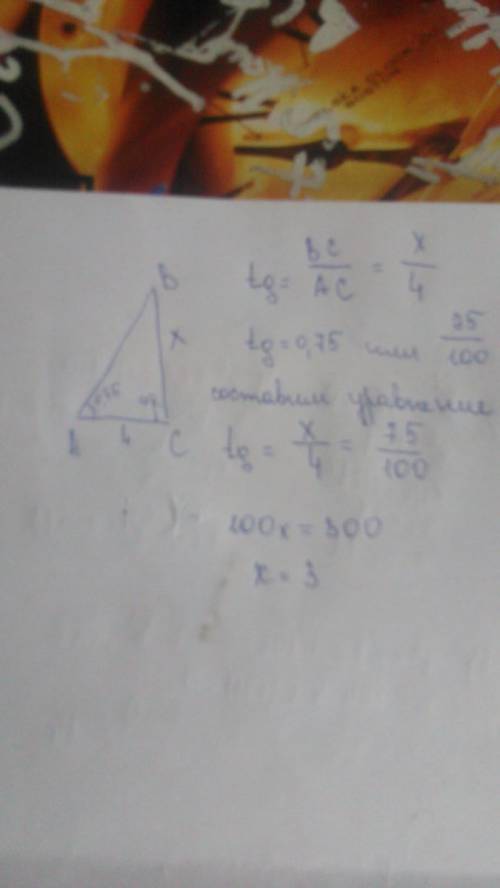 B
x
0,75
A
4
C
tg = BC/AC = x/4
tg = 0,75 или 75/100
составим уравнение
tg = x/4 = 75/100
100x = 300
x = 3